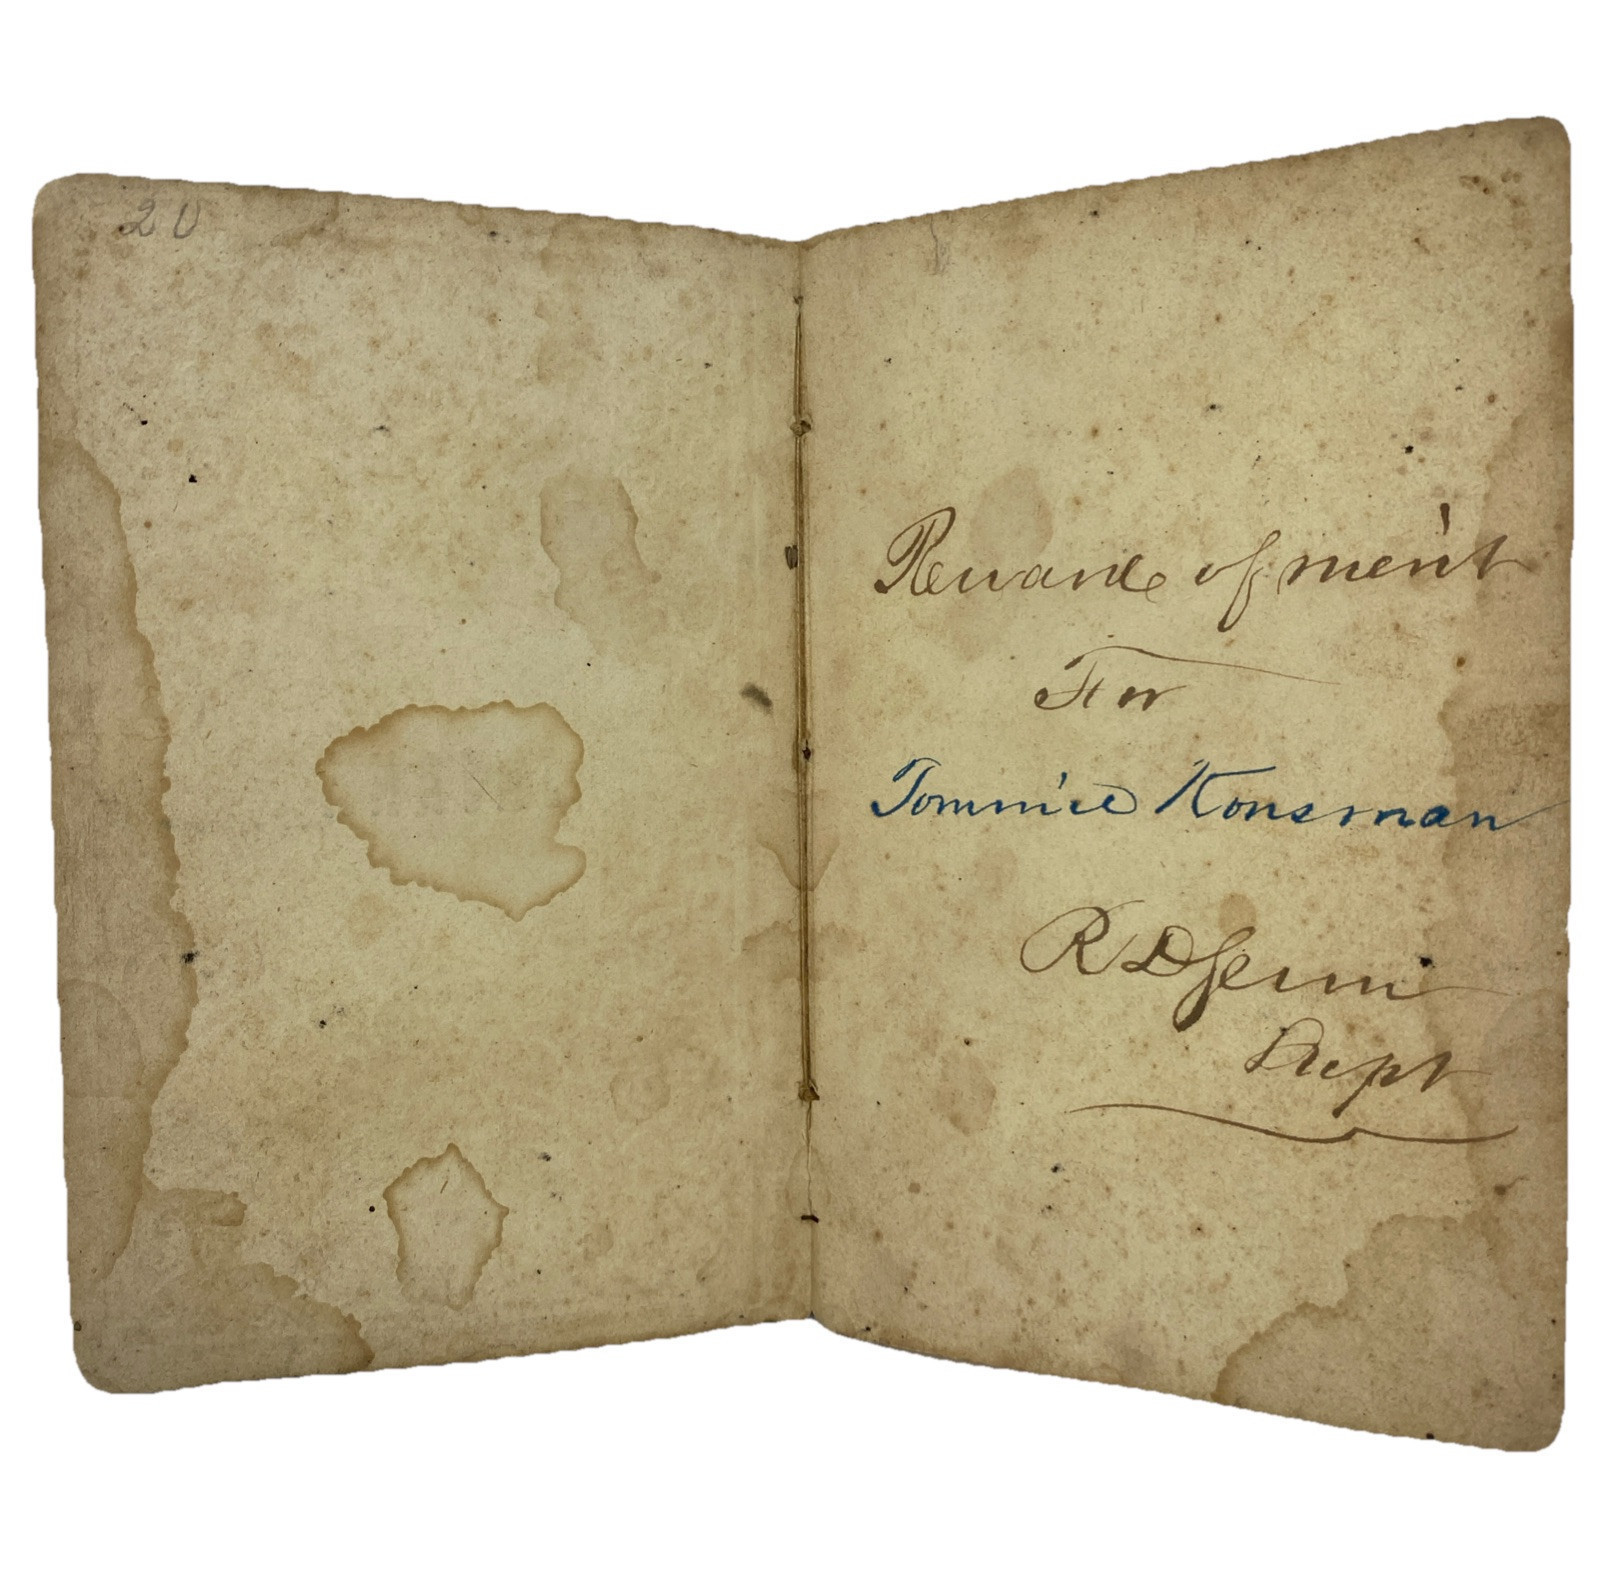 20
Reward of merit
For
Tommie Konsman
R D
Supt